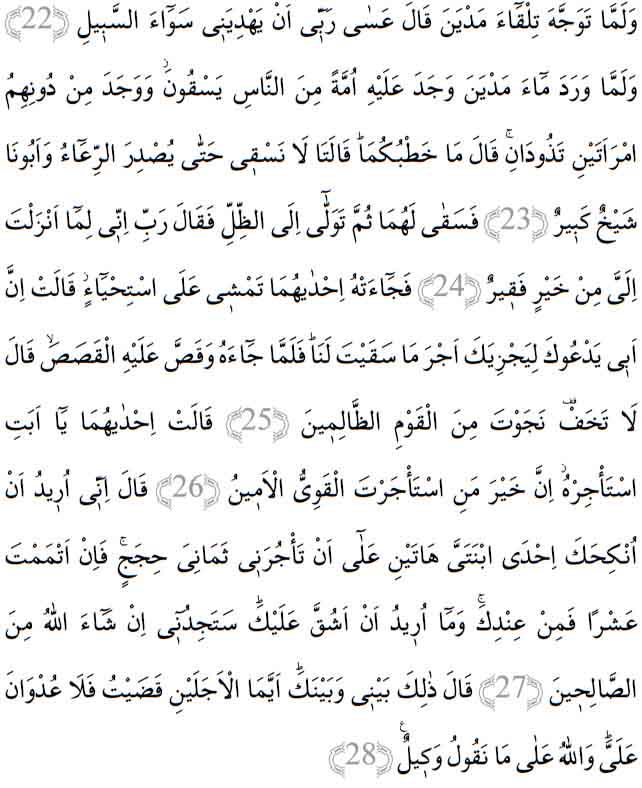 وَلَمَّا تَوَجَّهَ تِلْقَاءَ مَدْيَنَ قَالَ عَسٰى رَبّ۪ٓي اَنْ يَهْدِيَن۪ي سَوَٓاءَ السَّب۪يلِ ﴿22﴾
وَلَمَّا وَرَدَ مَٓاءَ مَدْيَنَ وَجَدَ عَلَيْهِ اُمَّةً مِنَ النَّاسِ يَسْقُونَۘ وَوَجَدَ مِنْ دُونِهِمُ
امْرَاَتَيْنِ تَذُودَانِۚ قَالَ مَا خَطْبُكُمَاۜ قَالَتَا لَا نَسْق۪ي حَتّٰى يُصْدِرَ الرِّعَٓاءُ وَاَبُونَا
شَيْخٌ كَب۪يرٌ ﴿23﴾ فَسَقٰى لَهُمَا ثُمَّ تَوَلّٰٓى اِلَى الظِّلِّ فَقَالَ رَبِّ اِنّ۪ي لِمَٓا اَنْزَلْتَ
اِلَيَّ مِنْ خَيْرٍ فَق۪يرٌ ﴿24﴾ فَجَٓاءَتْهُ اِحْدٰيهُمَا تَمْش۪ي عَلَى اسْتِحْيَٓاءٍۘ قَالَتْ اِنَّ
اَب۪ي يَدْعُوكَ لِيَجْزِيَكَ اَجْرَ مَا سَقَيْتَ لَنَاۜ فَلَمَّا جَٓاءَهُ وَقَصَّ عَلَيْهِ الْقَصَصَۙ قَالَ
لَا تَخَفْ۠ نَجَوْتَ مِنَ الْقَوْمِ الظَّالِم۪ينَ ﴿25﴾ قَالَتْ اِحْدٰيهُمَا يَٓا اَبَتِ
اسْتَأْجِرْهُۘ اِنَّ خَيْرَ مَنِ اسْتَأْجَرْتَ الْقَوِيُّ الْاَم۪ينُ ﴿26﴾ قَالَ اِنّ۪ٓي اُر۪يدُ اَنْ
اُنْكِحَكَ اِحْدَى ابْنَتَيَّ هَاتَيْنِ عَلٰٓى اَنْ تَأْجُرَن۪ي ثَمَانِيَ حِجَجٍۚ فَاِنْ اَتْمَمْتَ
عَشْرًا فَمِنْ عِنْدِكَۚ وَمَٓا اُر۪يدُ اَنْ اَشُقَّ عَلَيْكَۜ سَتَجِدُن۪ٓي اِنْ شَٓاءَ اللّٰهُ مِنَ
الصَّالِح۪ينَ ﴿27﴾ قَالَ ذٰلِكَ بَيْن۪ي وَبَيْنَكَۜ اَيَّمَا الْاَجَلَيْنِ قَضَيْتُ فَلَا عُدْوَانَ
عَلَيَّۜ وَاللّٰهُ عَلٰى مَا نَقُولُ وَك۪يلٌ۟ ﴿28﴾